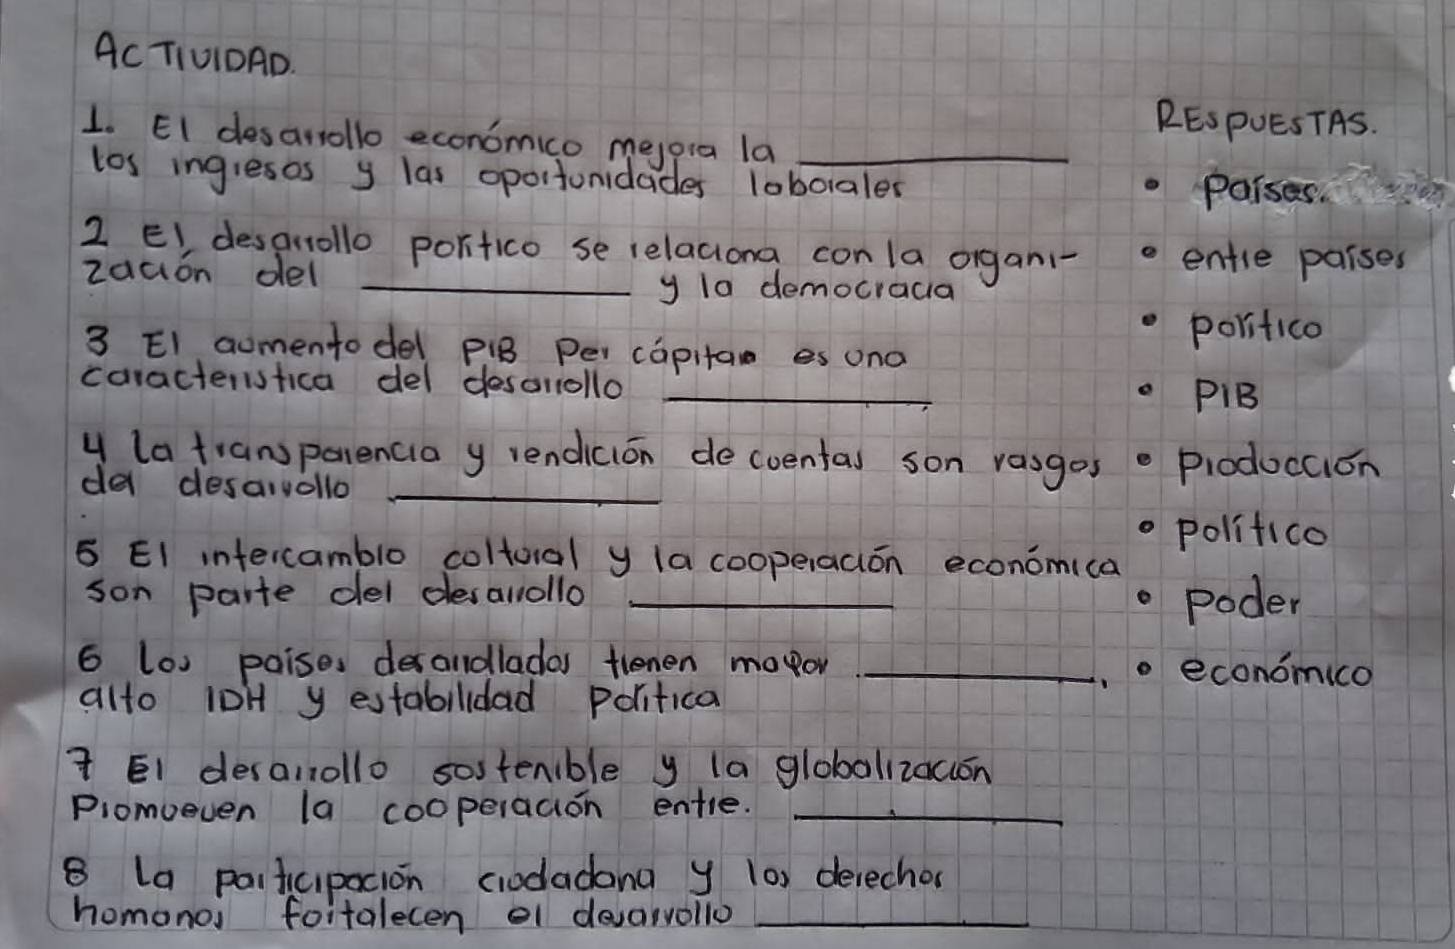 ACTIVIDAD.
1. El desarrollo económico mejora la ____________
los ingresos y las oportunidades laborales
2 El desarrollo político se relaciona con la organi-
zación del ____________ y la democracia
3 El aumento del PIB Per cápita es una
característica del desarrollo ____________.
4 La transparencia y rendición de cuentas son rasgos
del desarrollo ____________
5 El intercambio cultural y la cooperación económica
son parte del desarrollo ____________
6 Los países desarrollados tienen mayor ____________.
alto IDH y estabilidad política
7 El desarrollo sostenible y la globalización
Promueven la cooperación entre. ____________
8 La participación ciudadana y los derechos
humanos fortalecen el desarrollo ____________
RESPUESTAS.
• países.
• entre países
• político
• PIB
• Producción
• político
• Poder
• económico